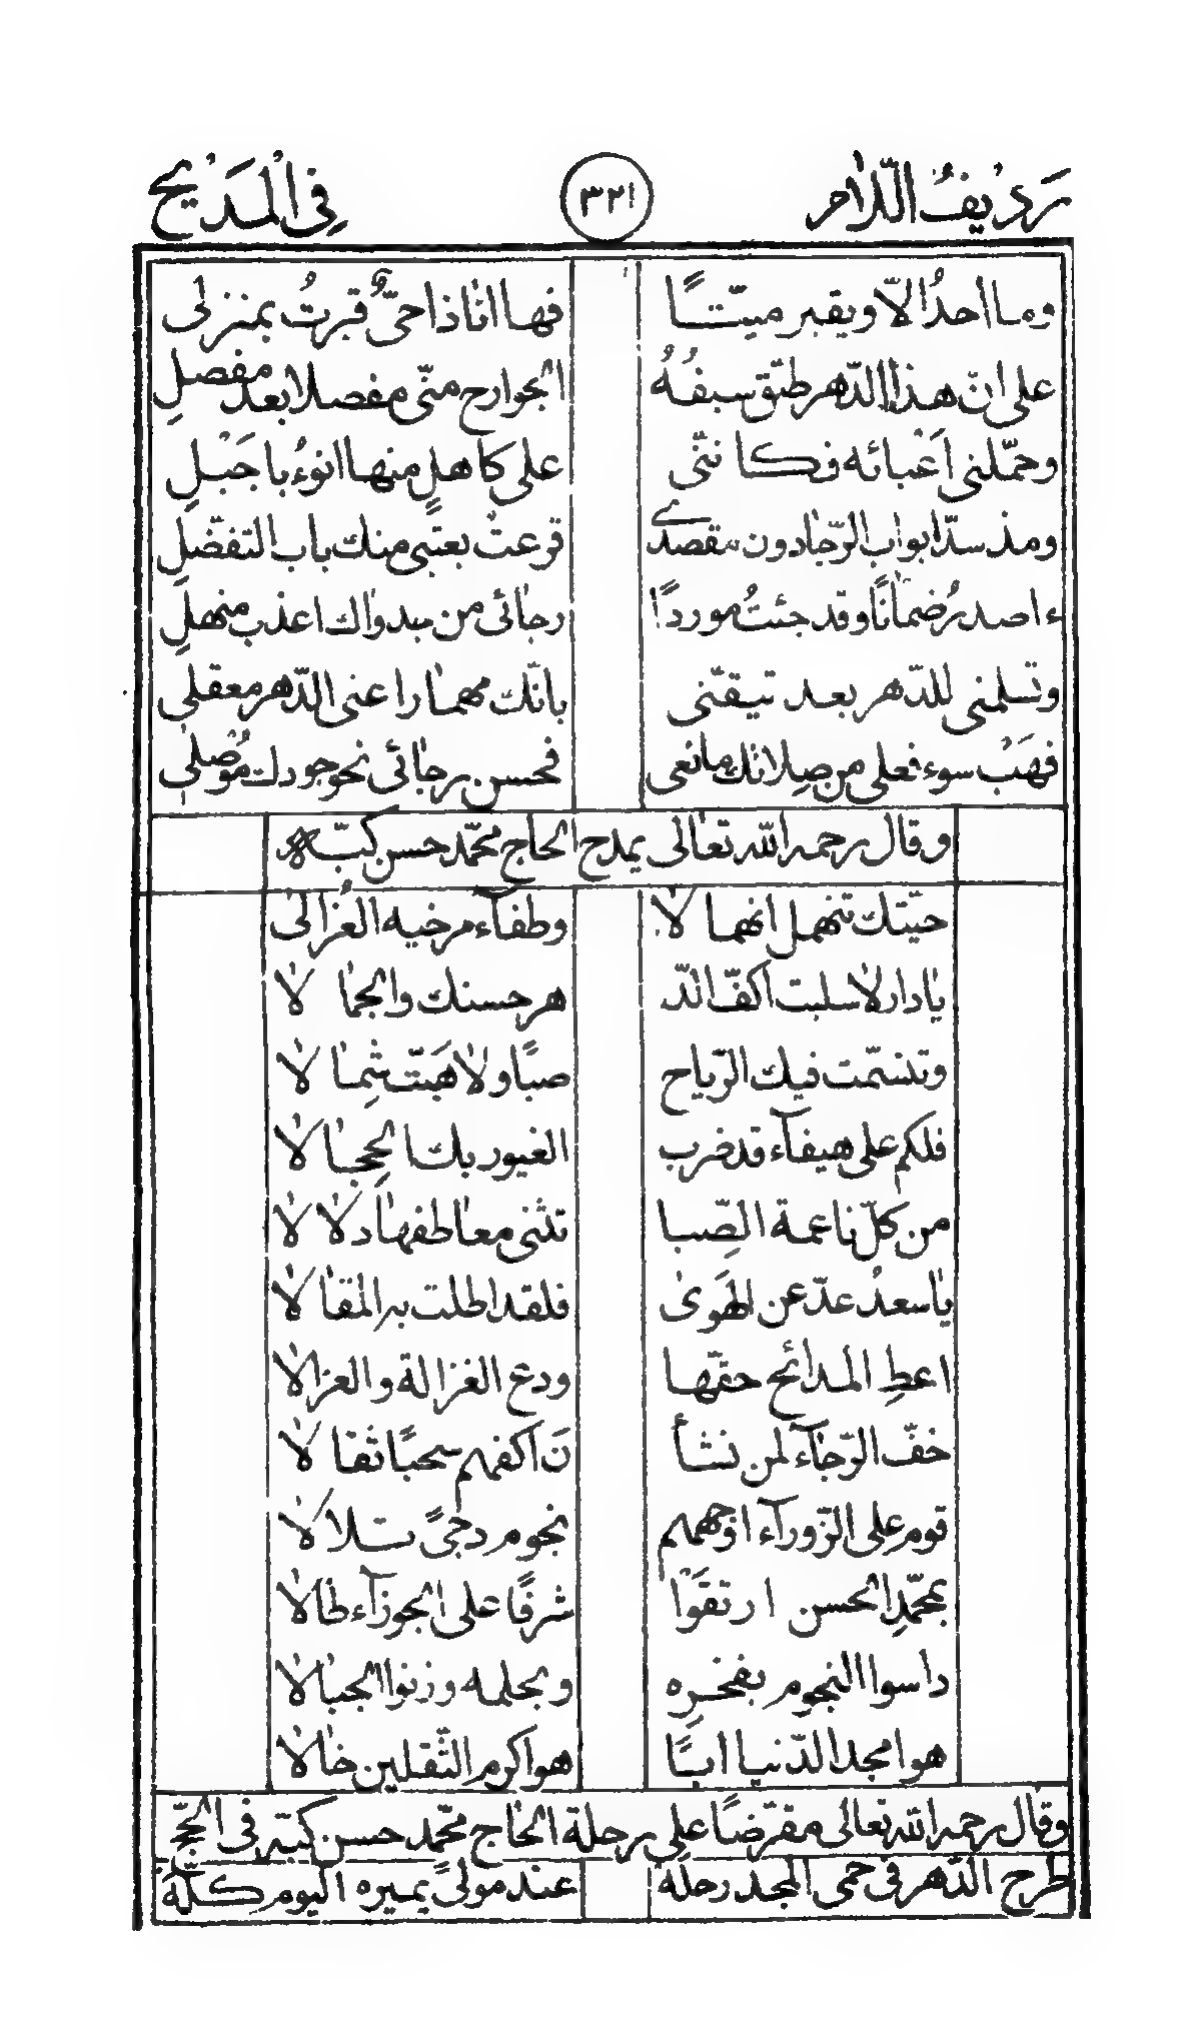 رديف اللام ٣٢١ في المديح
وما احدُ الّا ويقبر ميّتًا فها انا ذا حيٌّ قبرتُ بمنزلى
على انّ هذا الدّهر طبّق سيفُهُ الجوارح منّى مفصلا بعد مفصلِ
وحمّلنى اَعْبائه فكانّنى على كاهلٍ منها انوءُ باجَبْلِ
ومذ سدّ ابواب الرّجا دون مقصدى قرعت بعتبى منك باب التفضّلِ
ءاصدرُ ضمانًا وقد جئتُ موردًا رجائى من جدواك اعذب منهلِ
وتسلمنى للدّهر بعد تيقّنى بانّك مهما راعنى الدّهر معقلى
فهَبْ سوء فعلى من صِلاتك مانعى فحسن رجائى نحو جودك مُوصلى
وقال رحمه الله تعالى يمدح الحاج محمّد حسن كبّه
حيّتك تنهمل انهمالا وطفآء مرخيه العُزالى
يا دار لا سلبت اكفّ الدّ هر حسنك والجمالا
وتنسّمت فيك الرّياح صبًا ولا هَبّت شِمالا
فلكم على هيفآء قد ضرب الغيور بك الحِجالا
من كلّ ناعمة الصّبا تثنى معاطفها دلالا
يا سعدُ عدّ عن الهَوى فلقد اطلت به المقالا
اعطِ المدائح حقّها ودع الغزالة والغزالا
خفّ الرّجآء لمن نشأ نَ اكفهم سحبًا ثقالا
قوم على الزّورآء اوجههم نجوم دجىً تلالا
بمحمّدِ الحسن ارتقَوْا شرفًا على الجوزآء طالا
داسوا النجوم بفخره وبحلمه وزنوا الجبالا
هو امجد الدّنيا ابًا هو اكرم الثّقلين خالا
وقال رحمه الله تعالى مقرّضًا على رحلة الحاج محمّد حسن كبّه فى الحجّ
طرح الدّهر فى حمى المجد رحلَه عند مولىً يميره اليوم كلّه